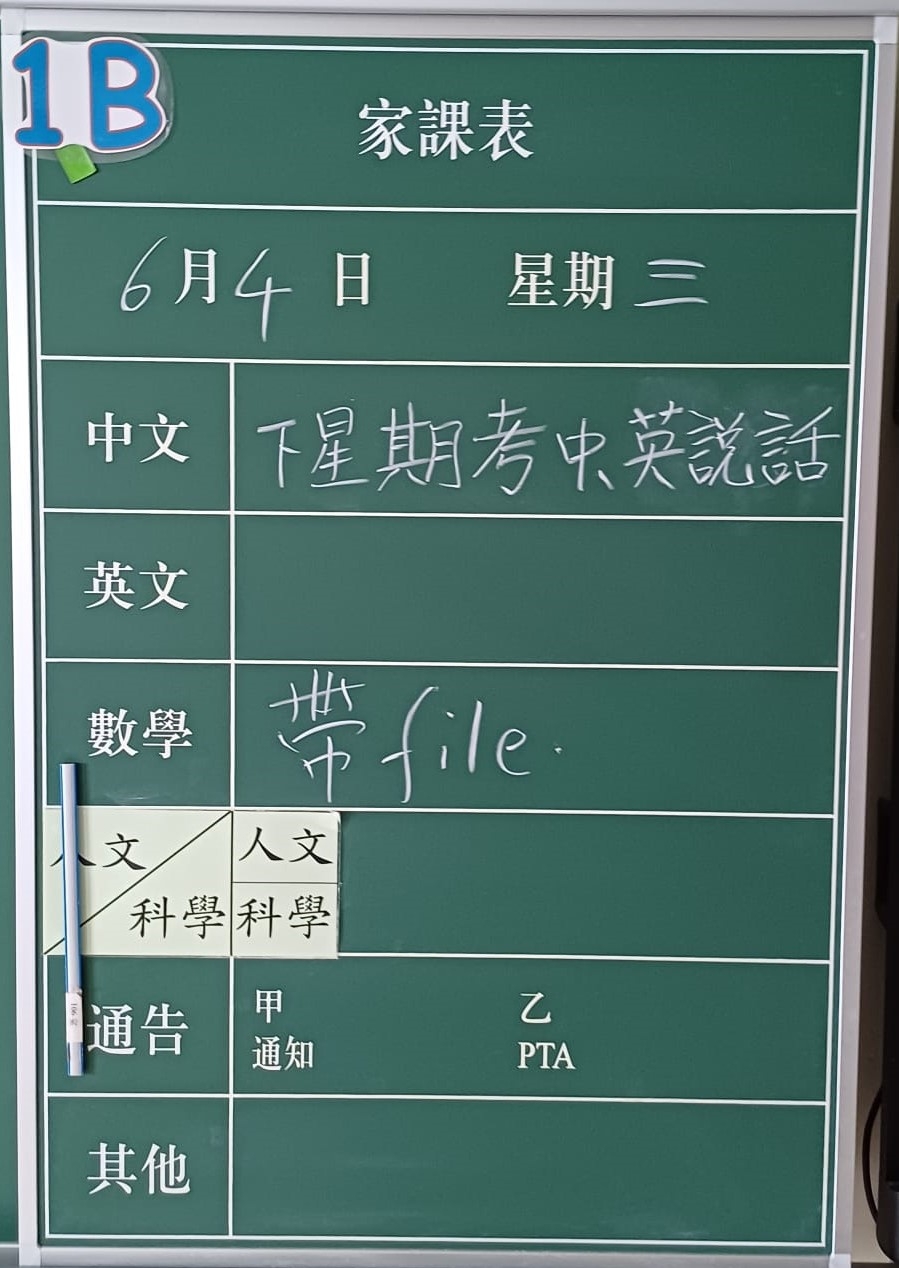 1B
家課表
6月4日 星期三
中文 下星期考中英説話
英文
數學 帶file.
人文 人文
科學 科學
通告 甲 乙
通知 PTA
其他